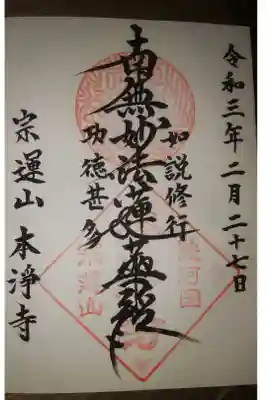 令和三年二月二十七日
如説修行
南無妙法蓮華経
功徳甚多
宗運山 本淨寺
宗運山